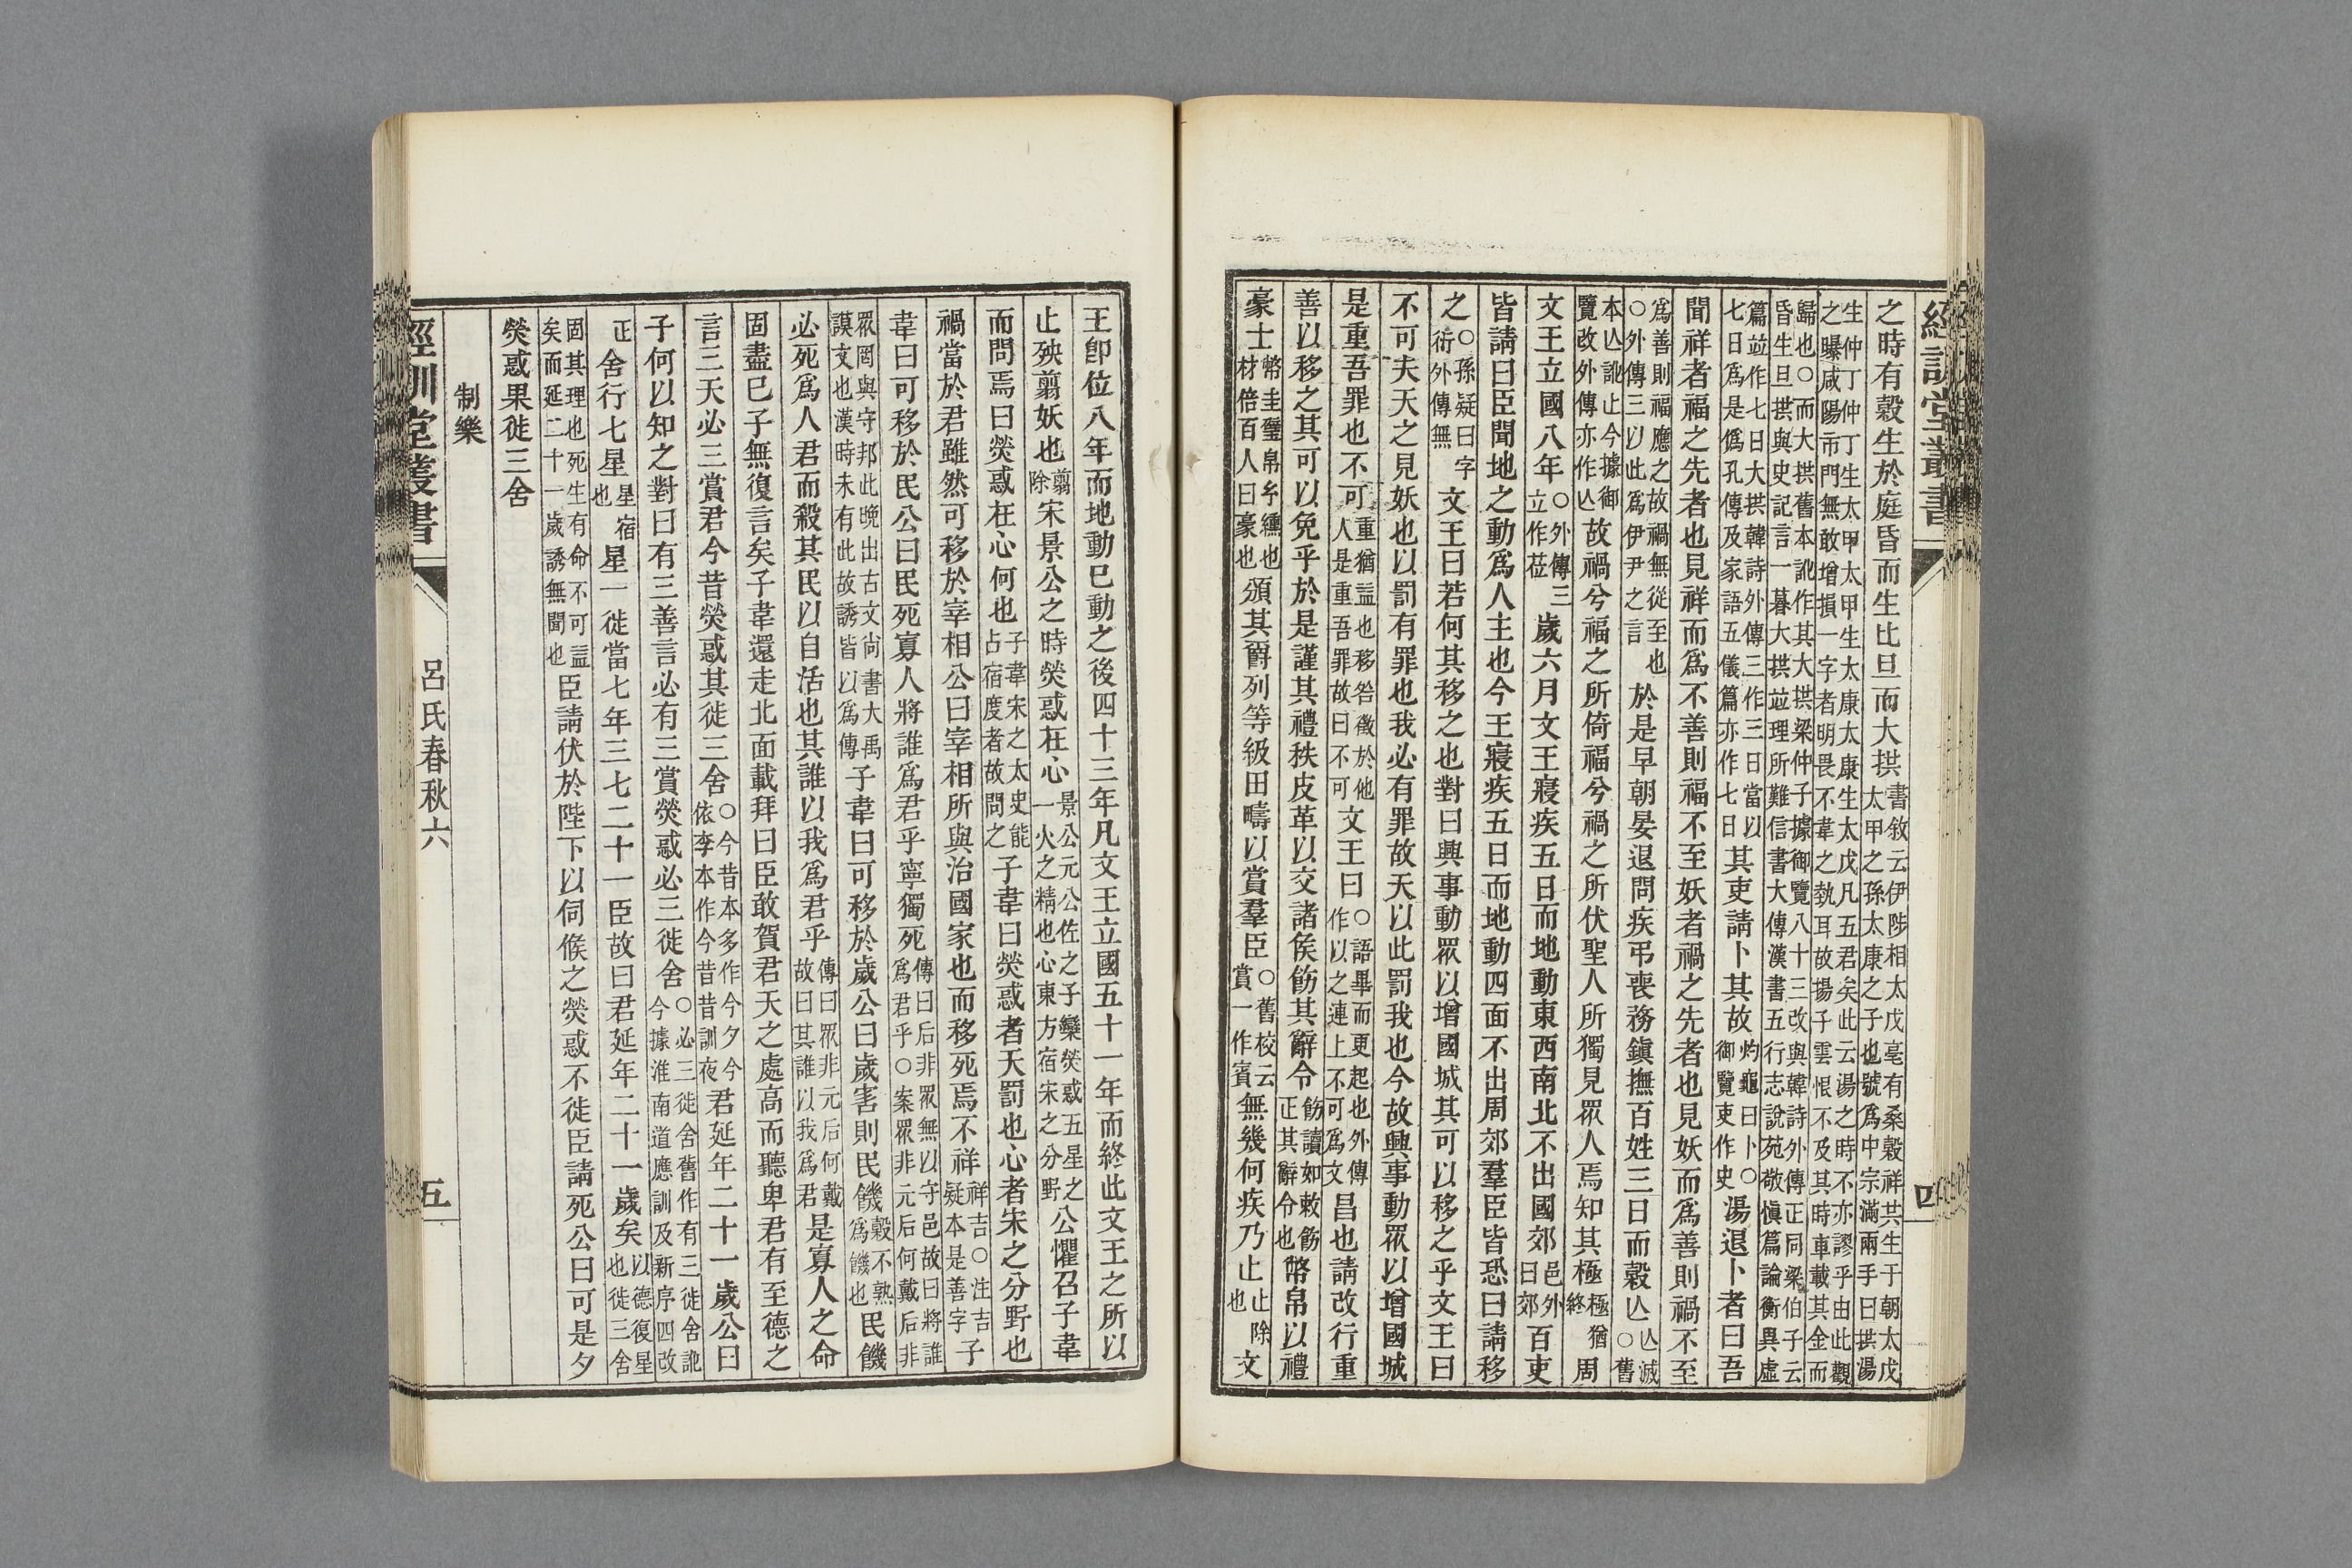 經訓堂叢書 四
之時有榖生於庭昏而生比旦而大拱書敘云伊陟相太戊亳有桑榖祥共生于朝太戊太甲之孫太康之子也號爲中宗滿兩手曰拱湯
生仲丁仲丁生太甲太甲生太康太康生太戊凡五君矣此云湯之時不亦謬乎由此觀之曝咸陽市門無敢增損一字者明畏不韋之埶耳故揚子雲恨不及其時車載其金而
歸也○而大拱舊本訛作其大拱梁仲子據御覽八十三改與韓詩外傳正同梁伯子云昏生旦拱與史記言一暮大拱竝理所難信書大傳漢書五行志說苑敬愼篇論衡異虛
篇竝作七日大拱韓詩外傳三作三日當以七日爲是僞孔傳及家語五儀篇亦作七日其吏請卜其故灼龜曰卜○御覽吏作史湯退卜者曰吾
聞祥者福之先者也見祥而爲不善則福不至妖者禍之先者也見妖而爲善則禍不至
爲善則福應之故禍無從至也○外傳三以此爲伊尹之言於是早朝晏退問疾弔喪務鎭撫百姓三日而榖亾亾滅○舊
本亾訛止今據御覽改外傳亦作亾故禍兮福之所倚福兮禍之所伏聖人所獨見眾人焉知其極極猶終周
文王立國八年○外傳三立作莅歲六月文王寢疾五日而地動東西南北不出國郊邑外曰郊百吏
皆請曰臣聞地之動爲人主也今王寢疾五日而地動四面不出周郊羣臣皆恐曰請移
之○孫疑曰字衍外傳無文王曰若何其移之也對曰興事動眾以增國城其可以移之乎文王曰
不可夫天之見妖也以罰有罪也我必有罪故天以此罰我也今故興事動眾以增國城
是重吾罪也不可重猶益也移咎徵於他人是重吾罪故曰不可文王曰○語畢而更起也外傳作以之連上不可爲文昌也請改行重
善以移之其可以免乎於是謹其禮秩皮革以交諸侯飭其辭令飭讀如敕飭正其辭令也幣帛以禮
豪士幣圭璧帛玄纁也材倍百人曰豪也頒其爵列等級田疇以賞羣臣○舊校云賞一作賓無幾何疾乃止止除也文
王卽位八年而地動已動之後四十三年凡文王立國五十一年而終此文王之所以
止殃翦妖也翦除宋景公之時熒惑在心景公元公佐之子欒熒惑五星之一火之精也心東方宿宋之分野公懼召子韋
而問焉曰熒惑在心何也子韋宋之太史能占宿度者故問之子韋曰熒惑者天罰也心者宋之分野也
禍當於君雖然可移於宰相公曰宰相所與治國家也而移死焉不祥祥吉○注吉疑本是善字子
韋曰可移於民公曰民死寡人將誰爲君乎寧獨死傳曰后非眾無以守邑故曰將誰爲君乎○案眾非元后何戴后非
眾罔與守邦此晚出古文尙書大禹謨文也漢時未有此故誘皆以爲傳子韋曰可移於歲公曰歲害則民饑穀不熟爲饑也民饑
必死爲人君而殺其民以自活也其誰以我爲君乎傳曰眾非元后何戴故曰其誰以我爲君是寡人之命
固盡已子無復言矣子韋還走北面載拜曰臣敢賀君天之處高而聽卑君有至德之
言三天必三賞君今昔熒惑其徙三舍○今昔本多作今夕今依李本作今昔昔訓夜君延年二十一歲公曰
子何以知之對曰有三善言必有三賞熒惑必三徙舍○必三徙舍舊作有三徙舍訛今據淮南道應訓及新序四改
正舍行七星星宿也星一徙當七年三七二十一臣故曰君延年二十一歲矣以德復星也徙三舍
固其理也死生有命不可益矣而延二十一歲誘無聞也臣請伏於陛下以伺候之熒惑不徙臣請死公曰可是夕
熒惑果徙三舍
制樂
經訓堂叢書 呂氏春秋六 五